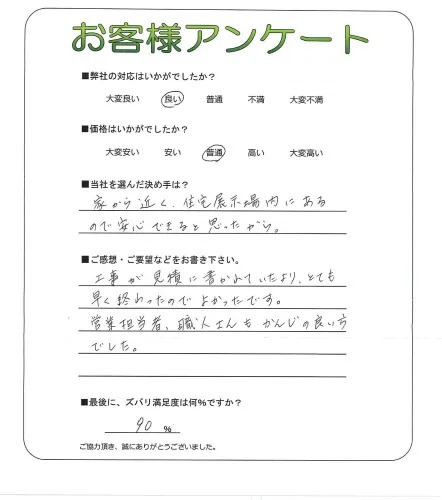 お客様アンケート
■弊社の対応はいかがでしたか？
大変良い 良い 普通 不満 大変不満
■価格はいかがでしたか？
大変安い 安い 普通 高い 大変高い
■当社を選んだ決め手は？
家から近く、住宅展示場内にある
ので安心できると思ったから。
■ご感想・ご要望などをお書き下さい。
工事が見積に書かれていたより、とても
早く終わったのでよかったです。
営業担当者、職人さんもかんじの良い方
でした。
■最後に、ズバリ満足度は何％ですか？
90 ％
ご協力頂き、誠にありがとうございました。